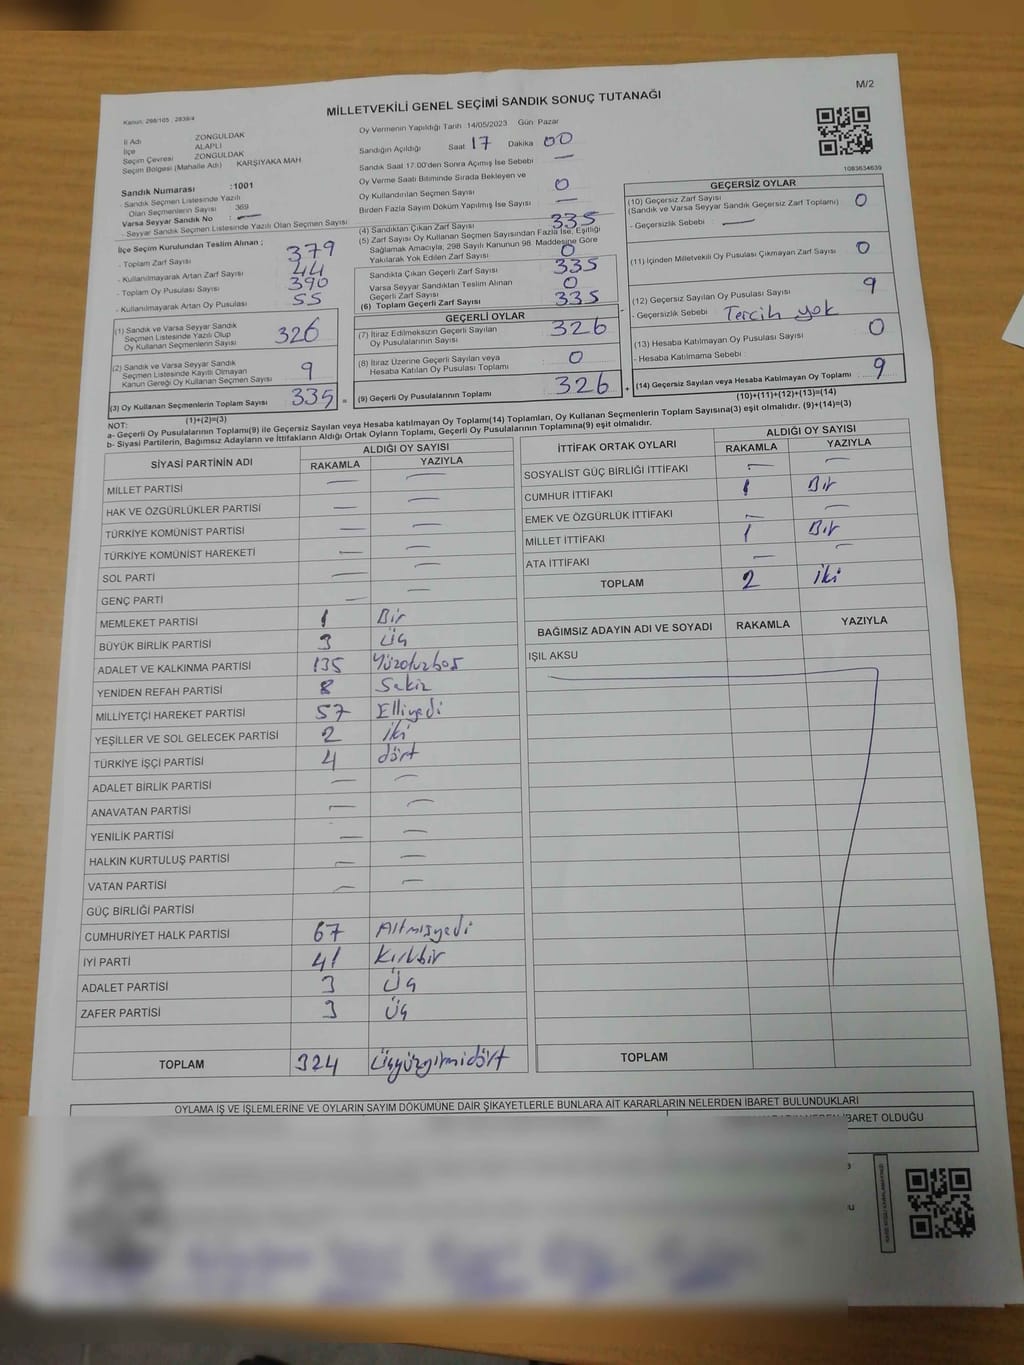 M/2
MİLLETVEKİLİ GENEL SEÇİMİ SANDIK SONUÇ TUTANAĞI
Kanun: 298/105 ; 2839/4
İl Adı ZONGULDAK
İlçe ALAPLI
Seçim Çevresi ZONGULDAK
Seçim Bölgesi (Mahalle Adı) KARŞIYAKA MAH.
Oy Vermenin Yapıldığı Tarih 14/05/2023 Gün: Pazar
Sandığın Açıldığı Saat 17 Dakika 00
Sandık Saat 17:00'den Sonra Açılmış İse Sebebi —
Oy Verme Saati Bitiminde Sırada Bekleyen ve
Oy Kullandırılan Seçmen Sayısı 0
Birden Fazla Sayım Döküm Yapılmış İse Sayısı —
1083634639
Sandık Numarası :1001
- Sandık Seçmen Listesinde Yazılı
Olan Seçmenlerin Sayısı : 369
Varsa Seyyar Sandık No : —
- Seyyar Sandık Seçmen Listesinde Yazılı Olan Seçmen Sayısı
İlçe Seçim Kurulundan Teslim Alınan ;
- Toplam Zarf Sayısı 379
- Kullanılmayarak Artan Zarf Sayısı 44
- Toplam Oy Pusulası Sayısı 390
- Kullanılmayarak Artan Oy Pusulası 55
(1) Sandık ve Varsa Seyyar Sandık
Seçmen Listesinde Yazılı Olup
Oy Kullanan Seçmenlerin Sayısı 326
(2) Sandık ve Varsa Seyyar Sandık
Seçmen Listesinde Kayıtlı Olmayan
Kanun Gereği Oy Kullanan Seçmen Sayısı 9
(3) Oy Kullanan Seçmenlerin Toplam Sayısı 335
(1)+(2)=(3)
(4) Sandıktan Çıkan Zarf Sayısı 335
(5) Zarf Sayısı Oy Kullanan Seçmen Sayısından Fazla İse, Eşitliği
Sağlamak Amacıyla; 298 Sayılı Kanunun 98. Maddesine Göre
Yakılarak Yok Edilen Zarf Sayısı 0
Sandıkta Çıkan Geçerli Zarf Sayısı 335
Varsa Seyyar Sandıktan Teslim Alınan
Geçerli Zarf Sayısı 0
(6) Toplam Geçerli Zarf Sayısı 335
GEÇERLİ OYLAR
(7) İtiraz Edilmeksizin Geçerli Sayılan
Oy Pusulalarının Sayısı 326
(8) İtiraz Üzerine Geçerli Sayılan veya
Hesaba Katılan Oy Pusulası Toplamı 0
(9) Geçerli Oy Pusulalarının Toplamı 326
GEÇERSİZ OYLAR
(10) Geçersiz Zarf Sayısı
(Sandık ve Varsa Seyyar Sandık Geçersiz Zarf Toplamı) 0
- Geçersizlik Sebebi : —
(11) İçinden Milletvekili Oy Pusulası Çıkmayan Zarf Sayısı 0
(12) Geçersiz Sayılan Oy Pusulası Sayısı 9
- Geçersizlik Sebebi : Tercih yok
(13) Hesaba Katılmayan Oy Pusulası Sayısı 0
- Hesaba Katılmama Sebebi :
(14) Geçersiz Sayılan veya Hesaba Katılmayan Oy Toplamı 9
(10)+(11)+(12)+(13)=(14)
NOT:
a- Geçerli Oy Pusulalarının Toplamı(9) ile Geçersiz Sayılan veya Hesaba katılmayan Oy Toplamı(14) Toplamları, Oy Kullanan Seçmenlerin Toplam Sayısına(3) eşit olmalıdır. (9)+(14)=(3)
b- Siyasi Partilerin, Bağımsız Adayların ve İttifakların Aldığı Ortak Oyların Toplamı, Geçerli Oy Pusulalarının Toplamına(9) eşit olmalıdır.
SİYASİ PARTİNİN ADI ALDIĞI OY SAYISI
RAKAMLA YAZIYLA
MİLLET PARTİSİ — —
HAK VE ÖZGÜRLÜKLER PARTİSİ — —
TÜRKİYE KOMÜNİST PARTİSİ — —
TÜRKİYE KOMÜNİST HAREKETİ — —
SOL PARTİ — —
GENÇ PARTİ — —
MEMLEKET PARTİSİ 1 Bir
BÜYÜK BİRLİK PARTİSİ 3 Üç
ADALET VE KALKINMA PARTİSİ 135 Yüzotuzbeş
YENİDEN REFAH PARTİSİ 8 Sekiz
MİLLİYETÇİ HAREKET PARTİSİ 57 Elliyedi
YEŞİLLER VE SOL GELECEK PARTİSİ 2 iki
TÜRKİYE İŞÇİ PARTİSİ 4 dört
ADALET BİRLİK PARTİSİ — —
ANAVATAN PARTİSİ — —
YENİLİK PARTİSİ — —
HALKIN KURTULUŞ PARTİSİ — —
VATAN PARTİSİ — —
GÜÇ BİRLİĞİ PARTİSİ
CUMHURİYET HALK PARTİSİ 67 Altmışyedi
İYİ PARTİ 41 Kırkbir
ADALET PARTİSİ 3 Üç
ZAFER PARTİSİ 3 Üç
TOPLAM 324 Üçyüzyirmidört
İTTİFAK ORTAK OYLARI ALDIĞI OY SAYISI
RAKAMLA YAZIYLA
SOSYALİST GÜÇ BİRLİĞİ İTTİFAKI — —
CUMHUR İTTİFAKI 1 Bir
EMEK VE ÖZGÜRLÜK İTTİFAKI — —
MİLLET İTTİFAKI 1 Bir
ATA İTTİFAKI — —
TOPLAM 2 iki
BAĞIMSIZ ADAYIN ADI VE SOYADI RAKAMLA YAZIYLA
IŞIL AKSU
TOPLAM
OYLAMA İŞ VE İŞLEMLERİNE VE OYLARIN SAYIM DÖKÜMÜNE DAİR ŞİKAYETLERLE BUNLARA AİT KARARLARIN NELERDEN İBARET BULUNDUKLARI
İBARET OLDUĞU